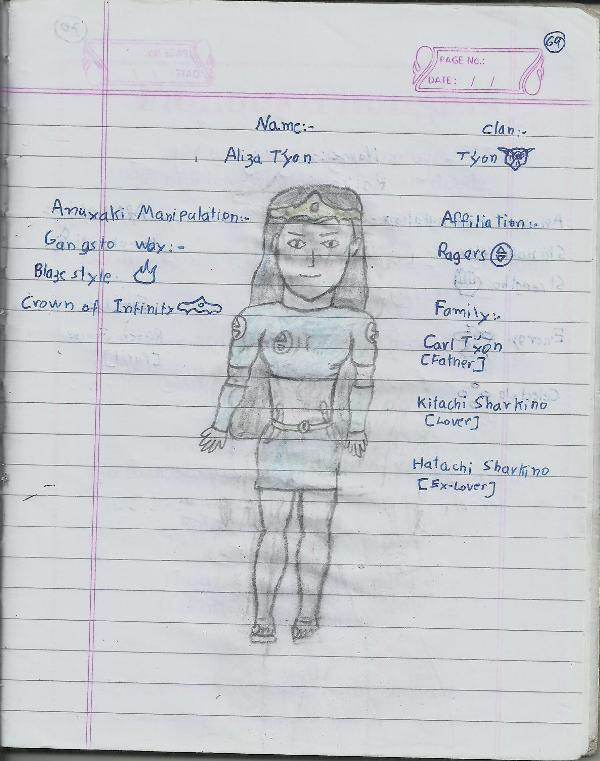 69
PAGE NO.:
DATE: / /
Name:-
Aliza Tyon
Clan:-
Tyon
Anuxaki Manipulation:-
Gangsto way:-
Blaze style
Crown of Infinity
Affiliation:-
Ragers
Family:-
Carl Tyon
[Father]
Kitachi Sharkino
[Lover]
Hatachi Sharkino
[Ex-Lover]